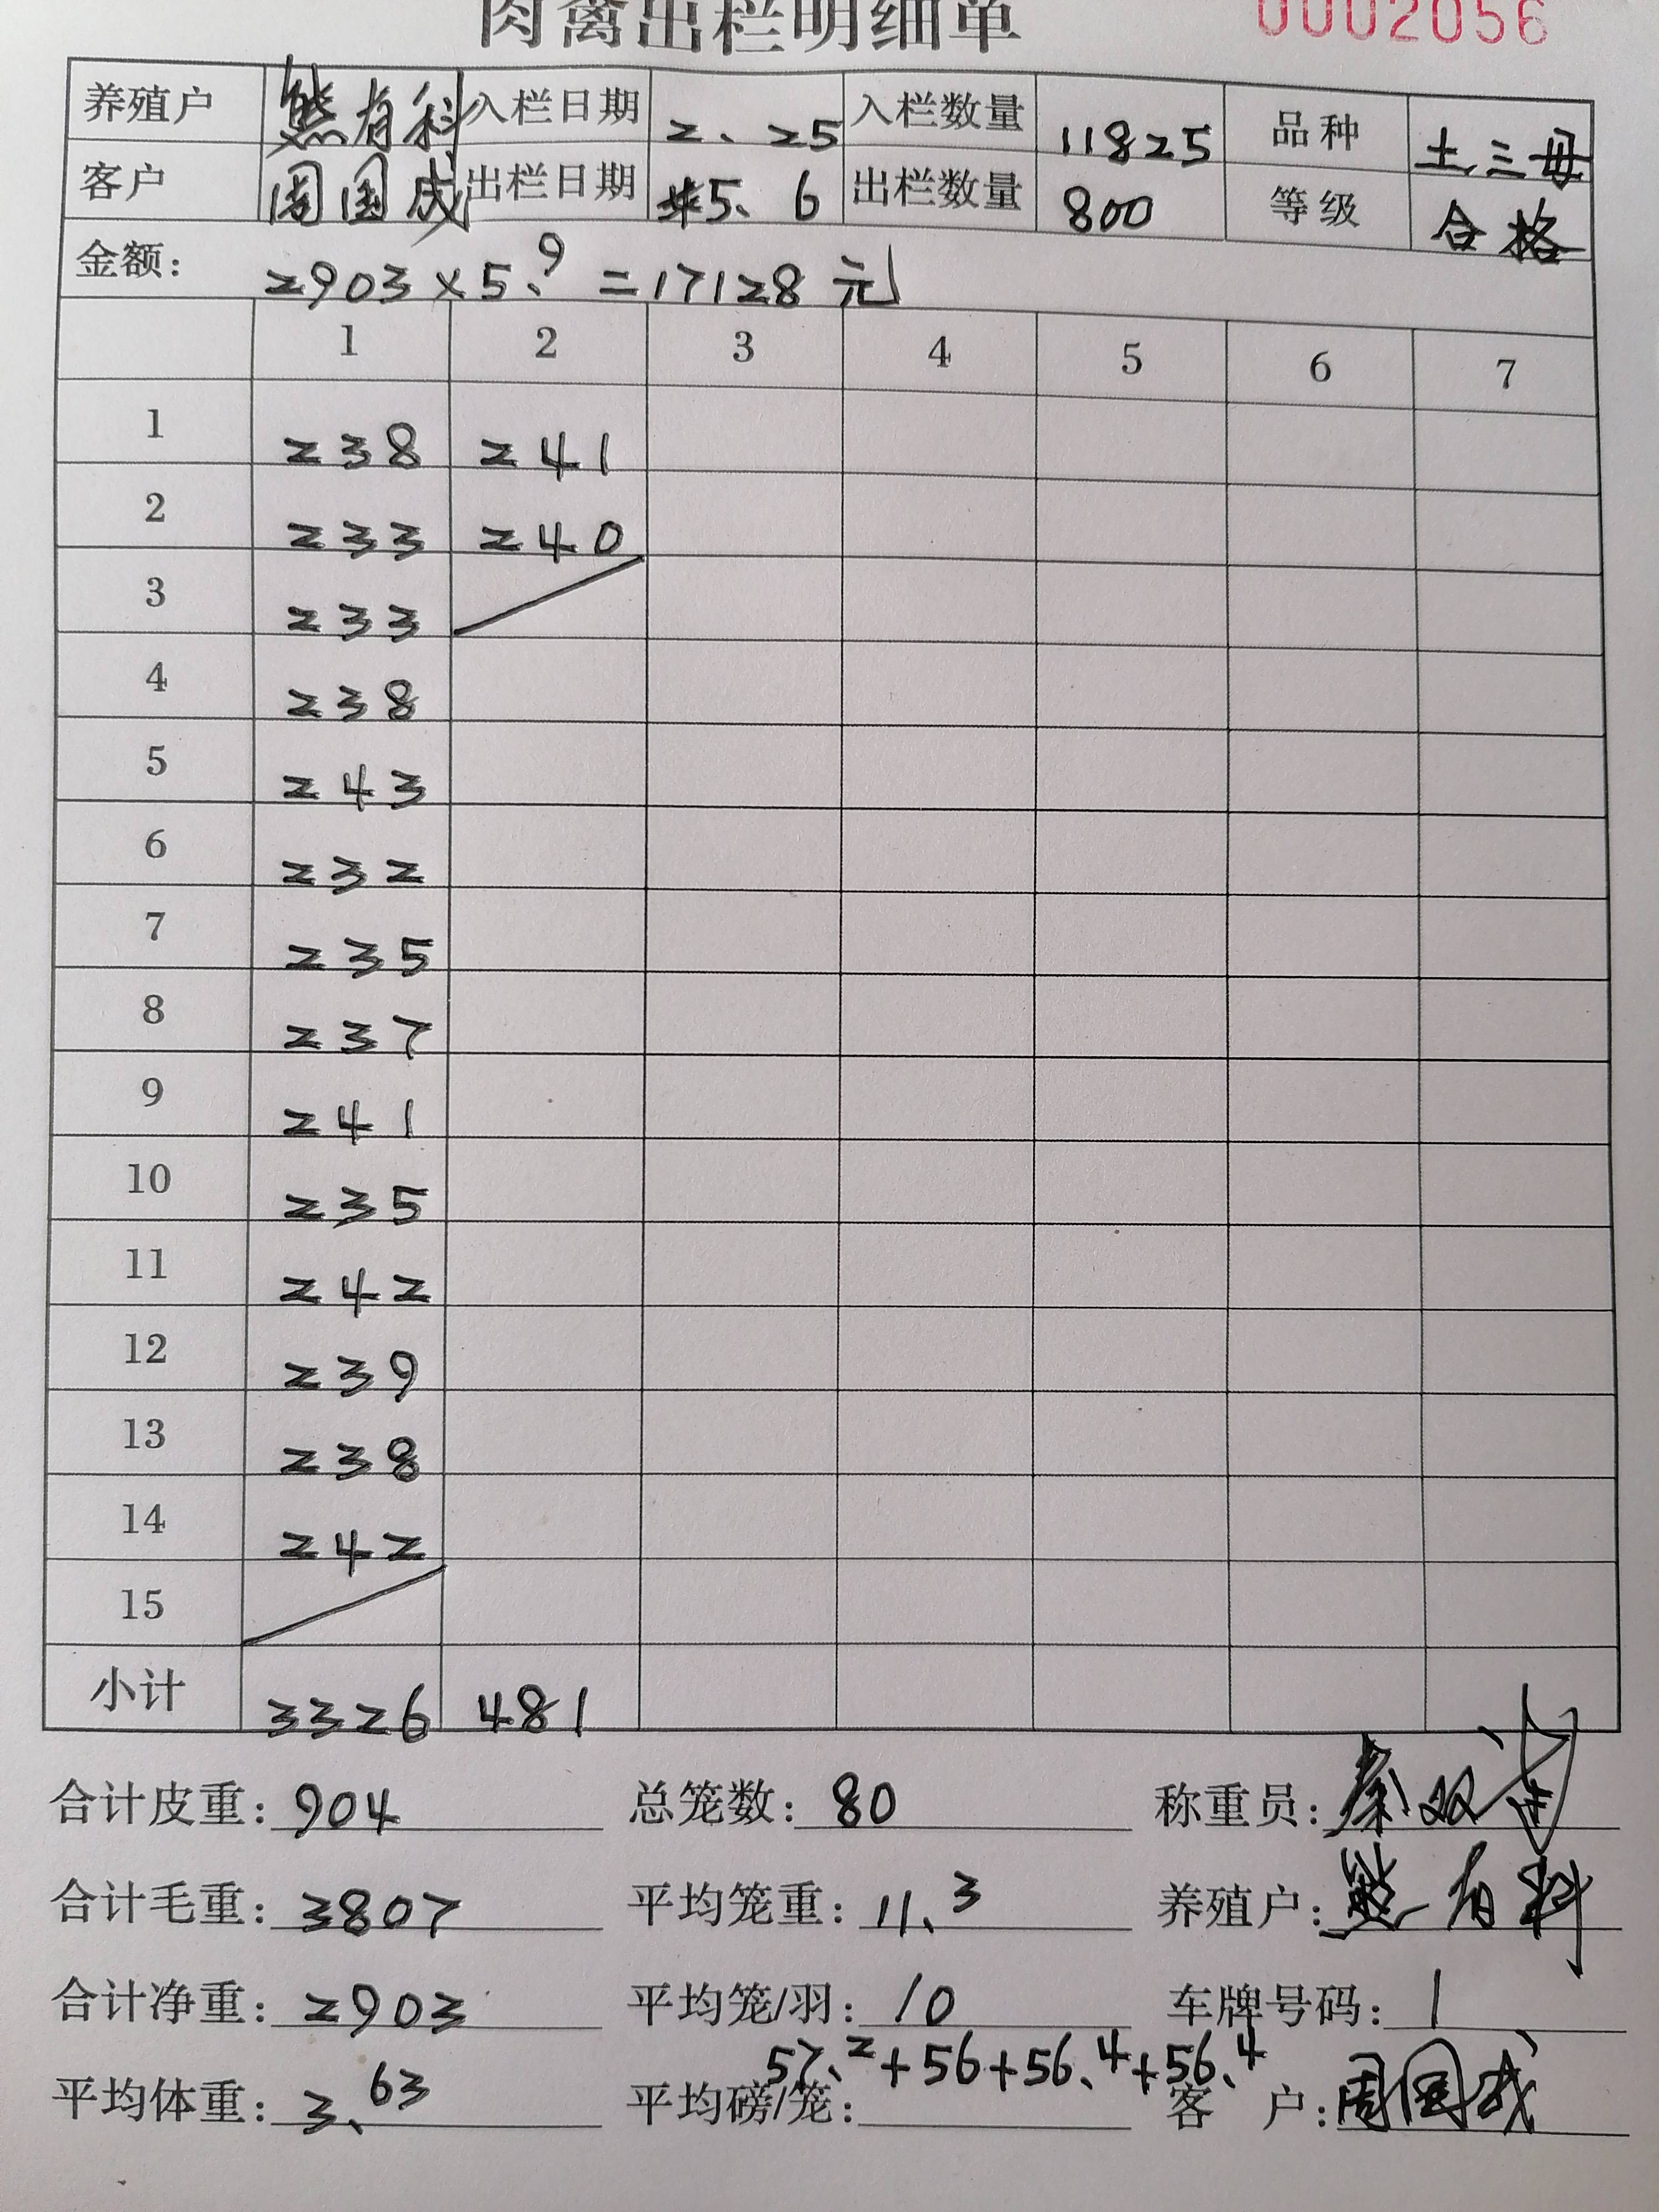 肉禽出栏明细单 0002056
养殖户 熊有科 入栏日期 2、25 入栏数量 11825 品种 土三母
客户 周国成 出栏日期 5、6 出栏数量 800 等级 合格
金额: 2903×5.9=17128元
1 2 3 4 5 6 7
1 238 241
2 233 240
3 233
4 238
5 243
6 232
7 235
8 237
9 241
10 235
11 242
12 239
13 238
14 242
15
小计 3326 481
合计皮重: 904 总笼数: 80 称重员: 秦双
合计毛重: 3807 平均笼重: 11、3 养殖户: 熊有科
合计净重: 2903 平均笼/羽: 10 车牌号码: 1
57、2+56+56、4+56、4
平均体重: 3、63 平均磅/笼: 客户: 周国成